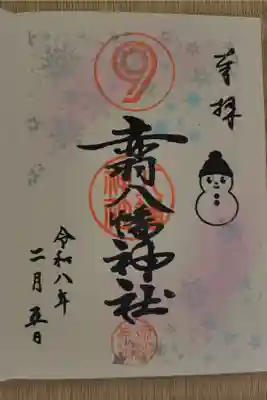 奉拝
9
赤羽八幡神社
令和八年
二月五日